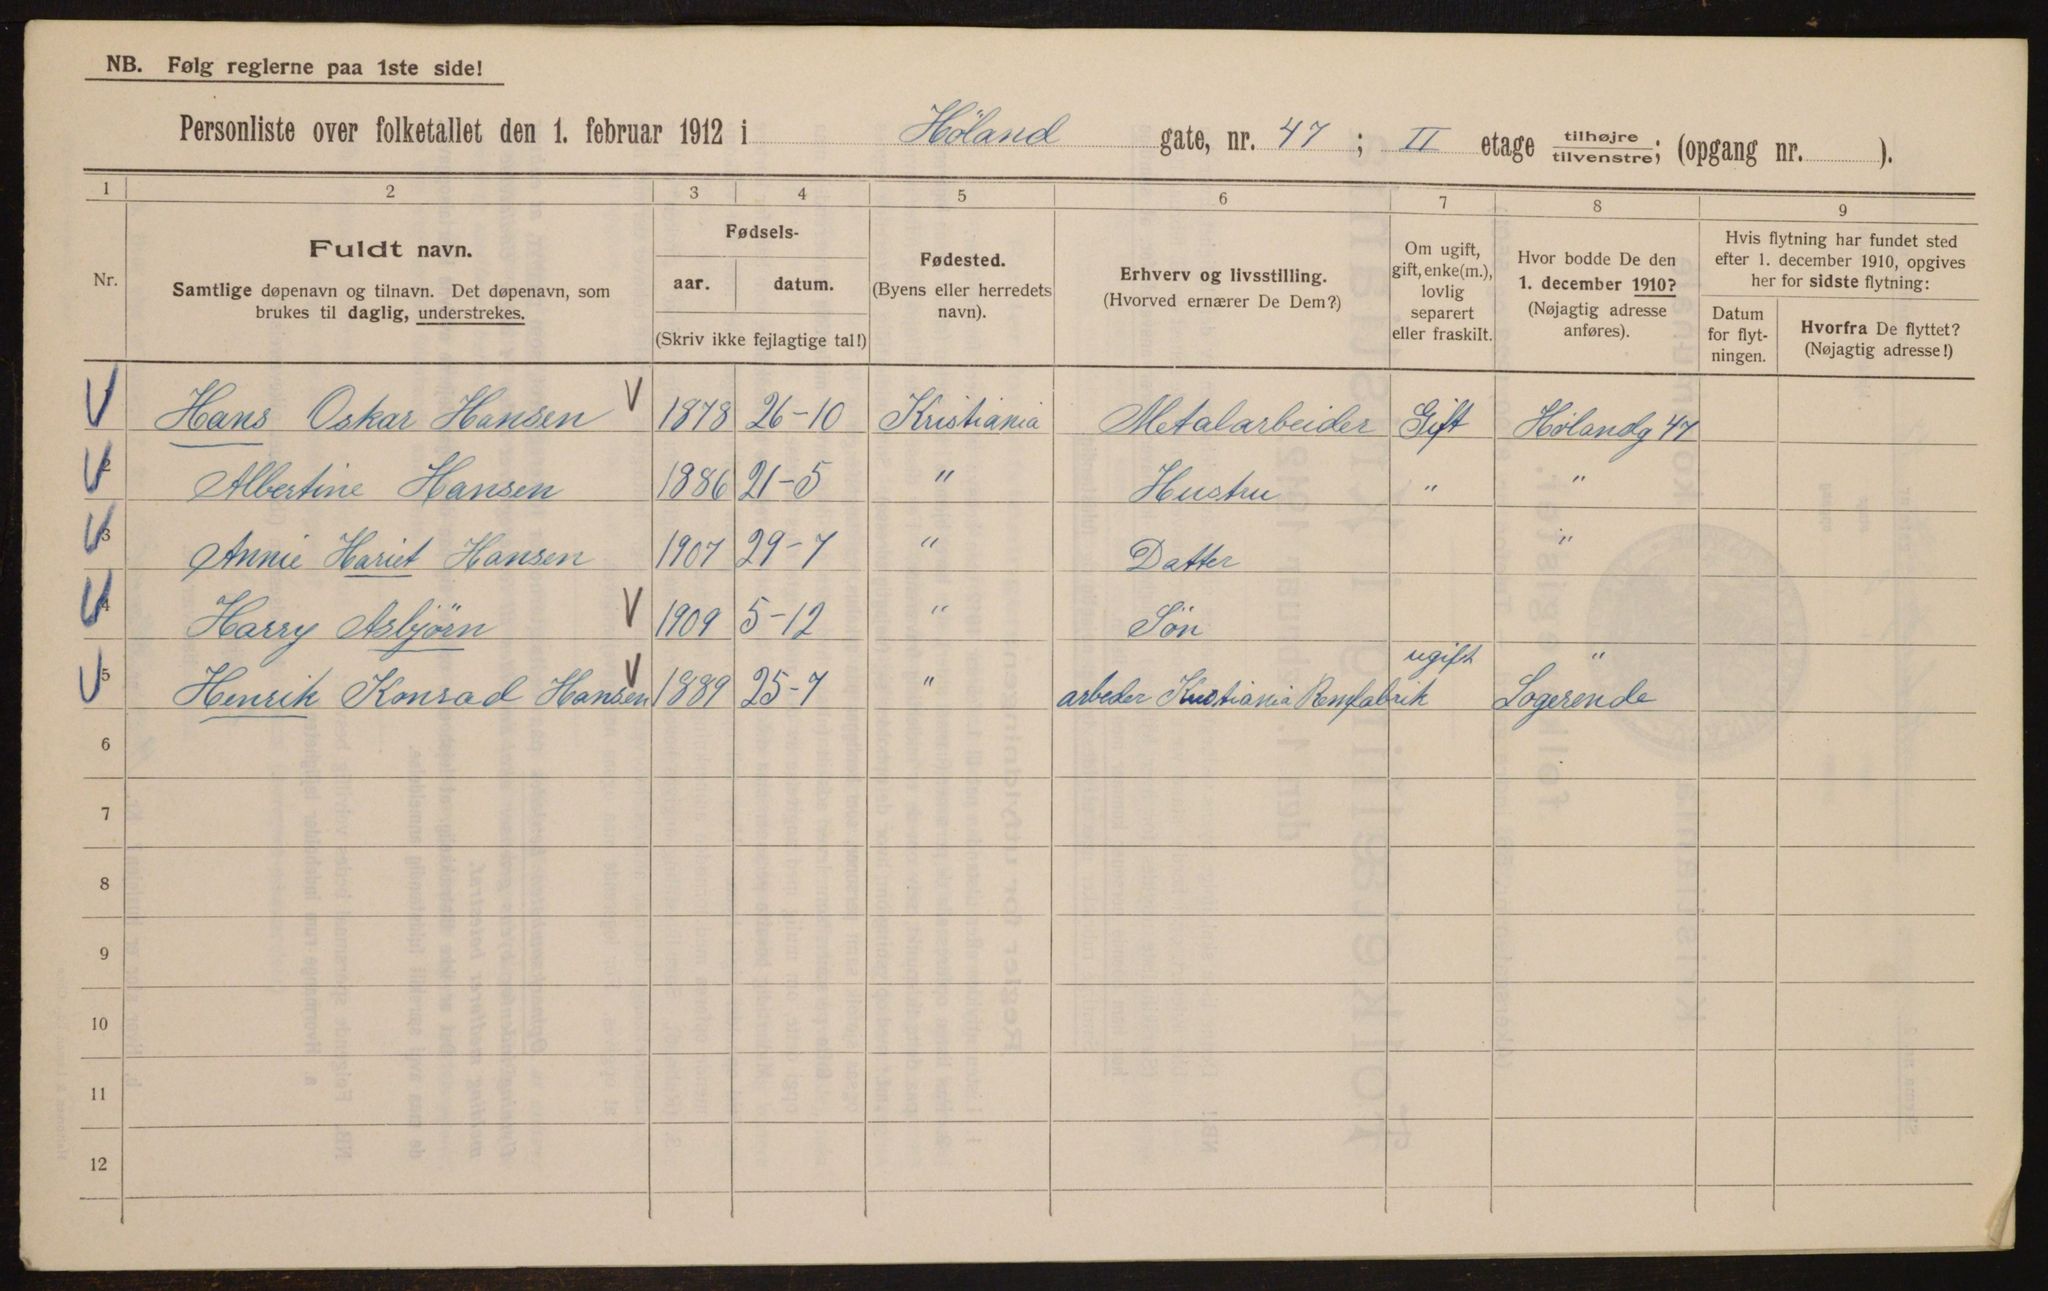 NB. Følg reglerne paa 1ste side!
Personliste over folketallet den 1. februar 1912 i Höland gate, nr. 47; II etage tilhøjre/tilvenstre; (opgang nr. ).
1 2 3 4 5 6 7 8 9
Nr.
Fuldt navn.
Samtlige døpenavn og tilnavn. Det døpenavn, som
brukes til daglig, understrekes.
Fødsels-
aar. datum.
(Skriv ikke fejlagtige tal!)
Fødested.
(Byens eller herredets
navn).
Erhverv og livsstilling.
(Hvorved ernærer De Dem?)
Om ugift,
gift, enke(m.),
lovlig
separert
eller fraskilt.
Hvor bodde De den
1. december 1910?
(Nøjagtig adresse
anføres).
Hvis flytning har fundet sted
efter 1. december 1910, opgives
her for sidste flytning:
Datum
for flyt-
ningen.
Hvorfra De flyttet?
(Nøjagtig adresse!)
1 Hans Oskar Hansen 1878 26-10 Kristiania Metalarbeider Gift Hölandg 47
2 Albertine Hansen 1886 21-5 " Hustru " "
3 Annie Hariet Hansen 1907 29-7 " Datter "
4 Harry Asbjörn 1909 5-12 " Sön "
5 Henrik Konrad Hansen 1889 25-7 " arbeder Kristiania Remfabrik ugift Logerende
6
7
8
9
10
11
12